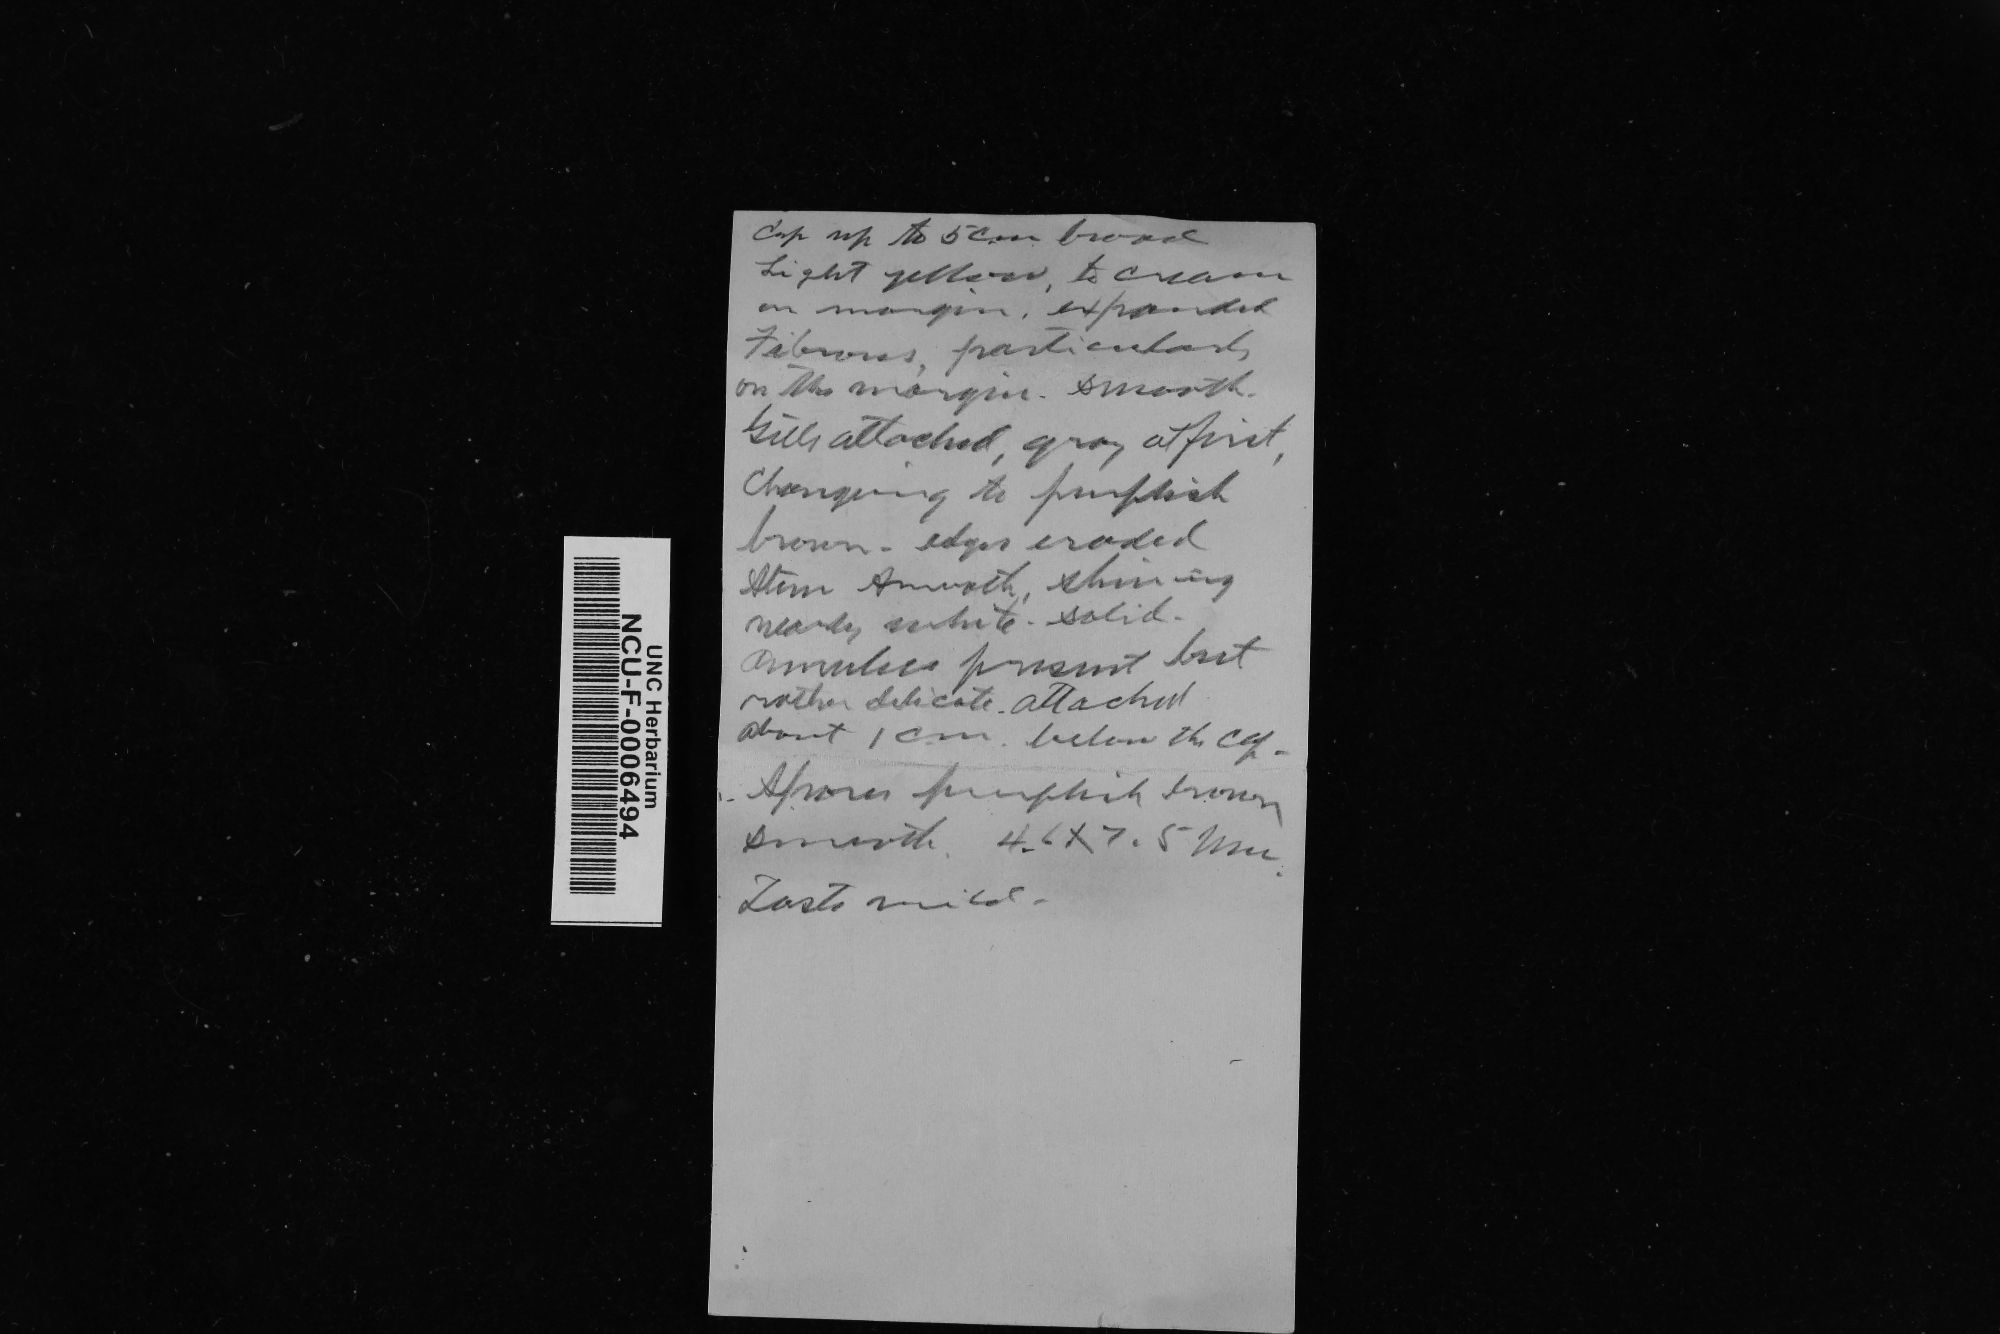 Cap up to 5 cm broad
Light yellow, to cream
on margin, expanded
Fibrous, particularly
on the margin - smooth -
Gills attached, gray at first,
changing to purplish
brown - edges eroded
Stem smooth, shining
nearly white - solid -
annulus present but
rather delicate - attached
about 1 cm. below the cap -
Spores purplish brown
smooth. 4.6 X 7.5
Taste mild -
UNC Herbarium
NCU-F-0006494